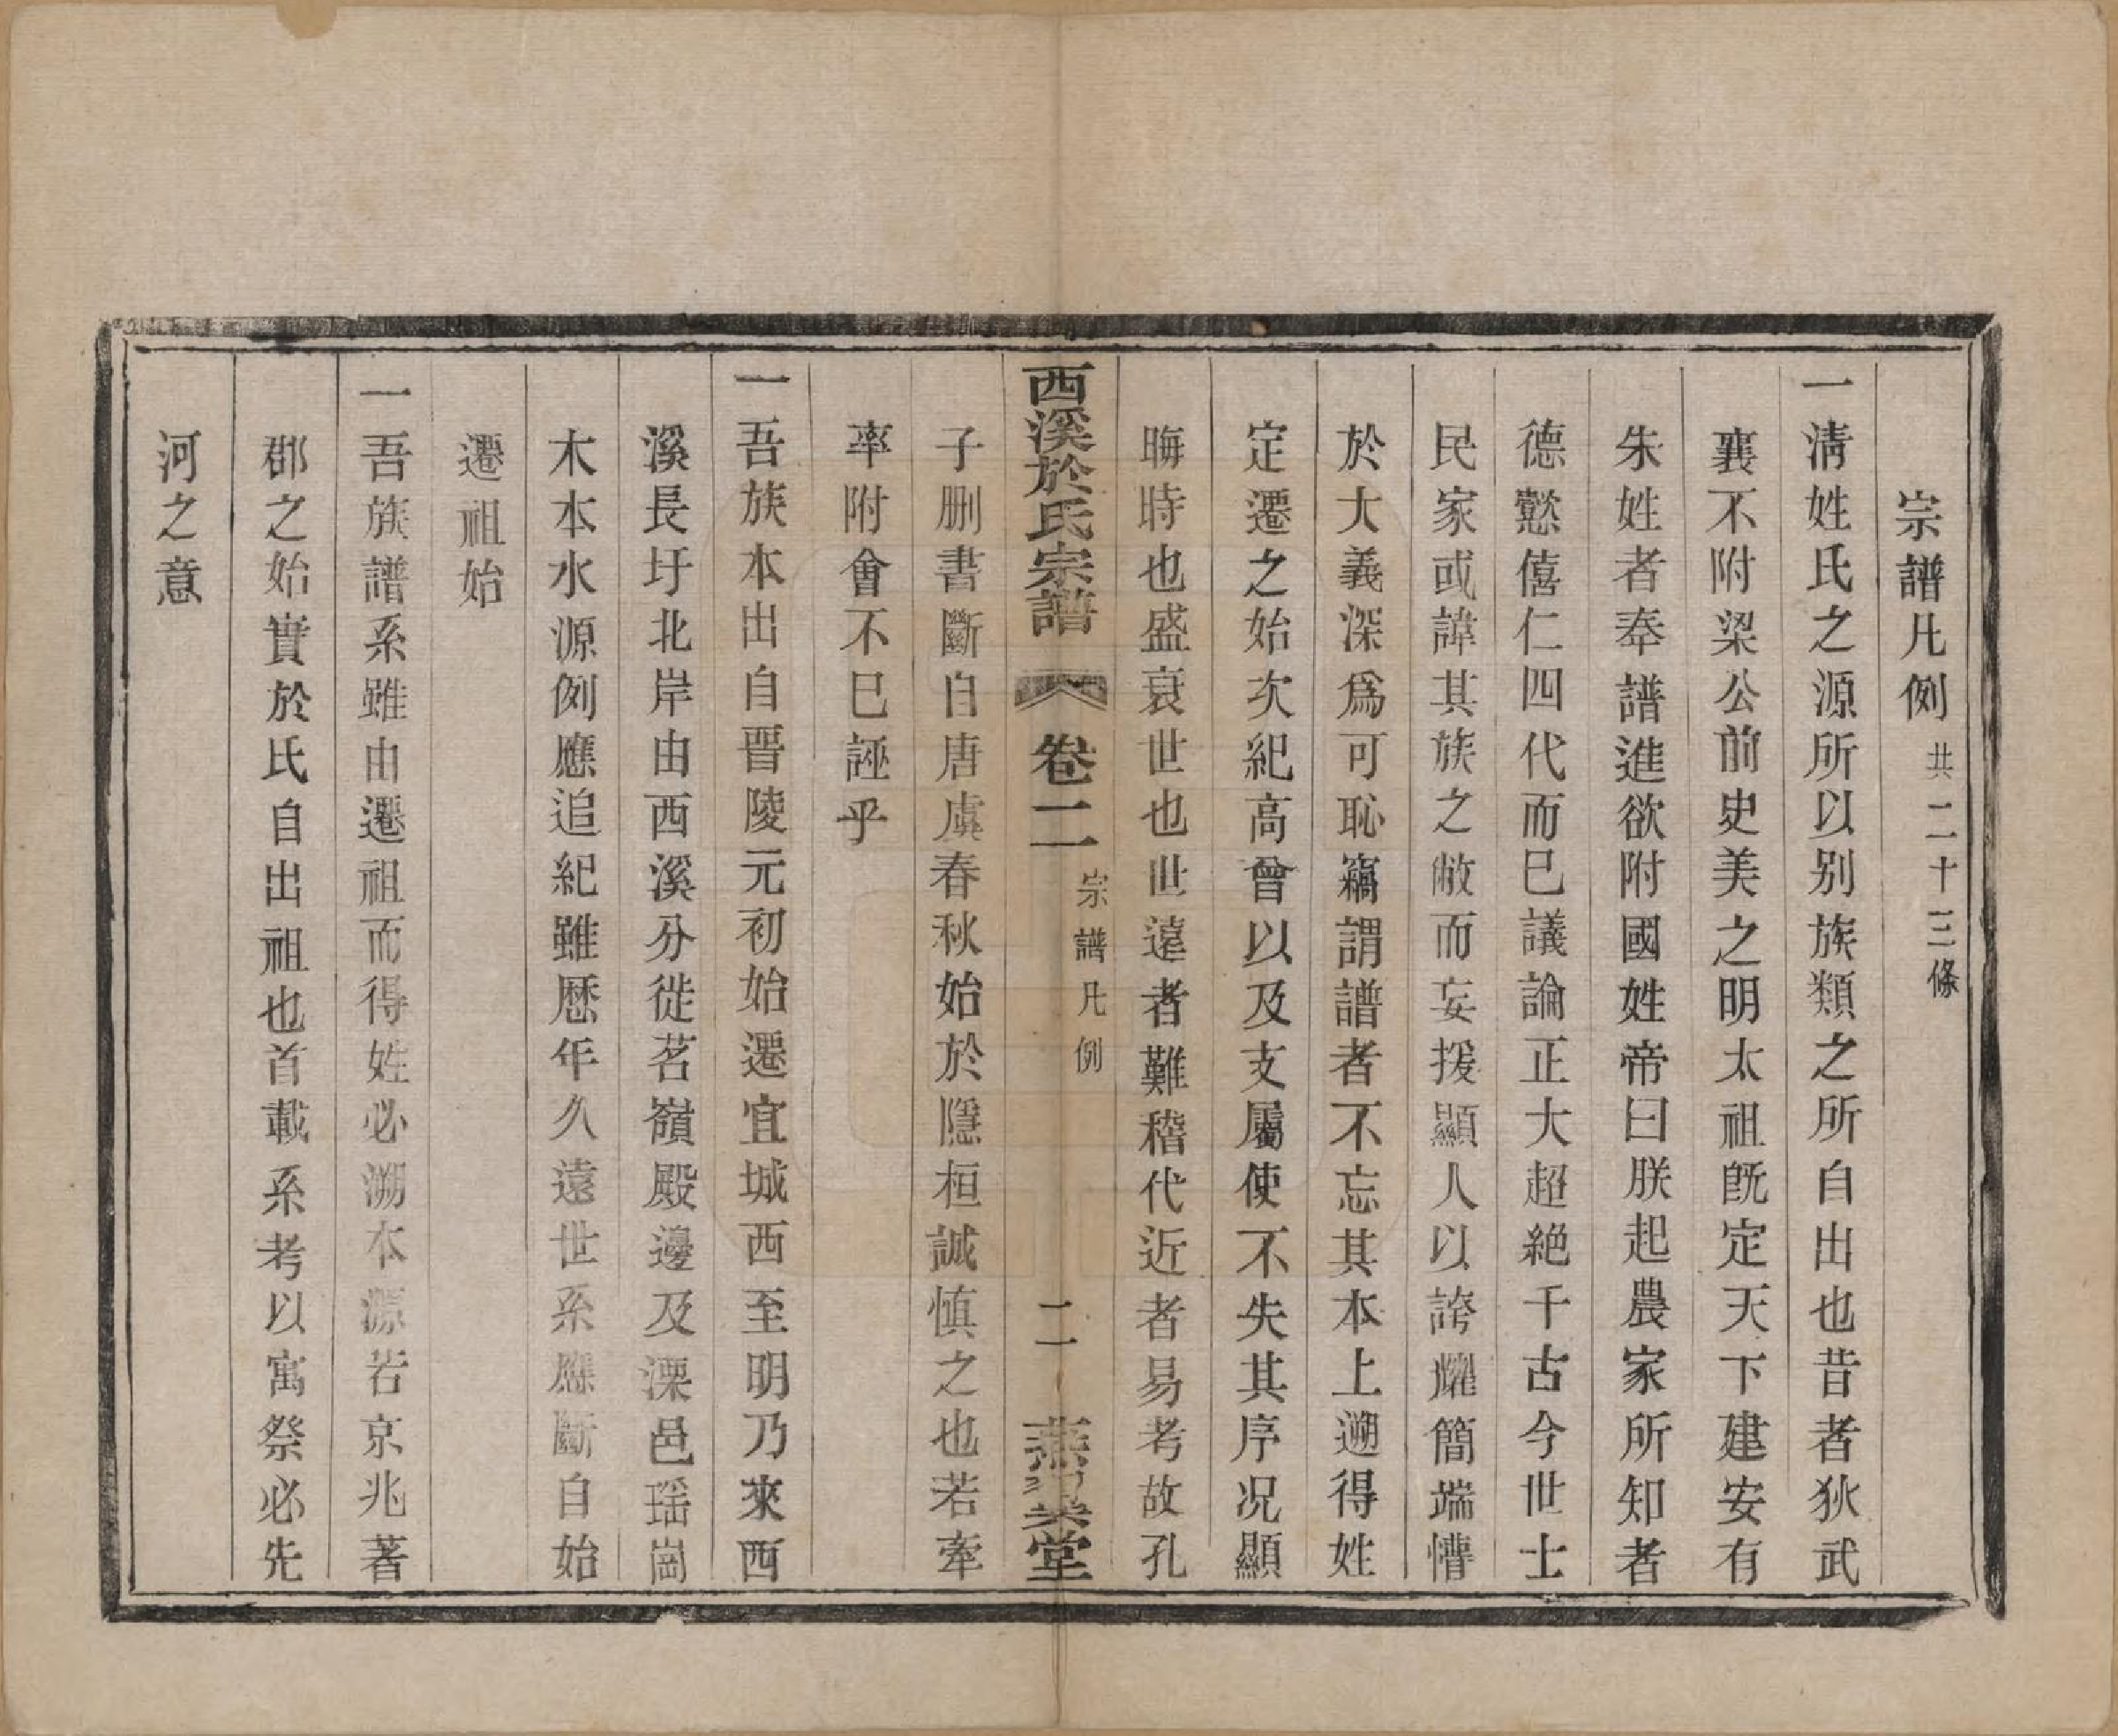 宗譜凡例共二十三條
一淸姓氏之源所以别族類之所自出也昔者狄武
襄不附梁公前史美之明太祖旣定天下建安有
朱姓者奉譜進欲附國姓帝曰朕起農家所知者
德懿僖仁四代而已議論正大超絶千古今世士
民家或諱其族之敝而妄援顯人以誇耀簡端懵
於大義深爲可恥竊謂譜者不忘其本上遡得姓
定遷之始次紀高曾以及支屬使不失其序况顯
晦時也盛衰世也世遠者難稽代近者易考故孔
西溪於氏宗譜 卷二 宗譜凡例 二 堂
子删書斷自唐虞春秋始於隱桓誠愼之也若牽
率附會不巳誣乎
一吾族本出自晋陵元初始遷宜城西至明乃來西
溪長圩北岸由西溪分徙茗嶺殿邊及溧邑瑶崗
木本水源例應追紀雖歷年久遠世系應斷自始
遷祖始
一吾族譜系雖由遷祖而得姓必溯本源若京兆著
郡之始實於氏自出祖也首載系考以寓祭必先
河之意